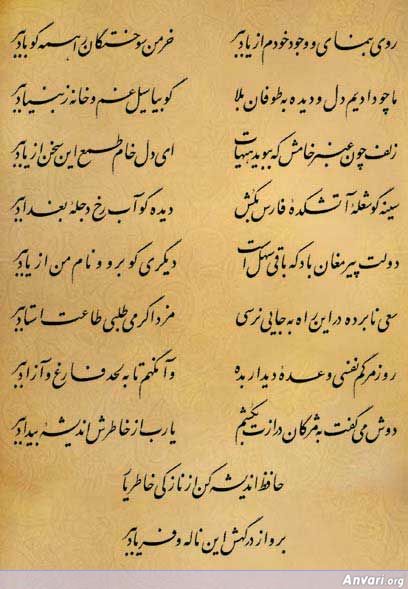 روی بنمای و وجود خودم از یاد ببر خرمن سوختگان را همه گو باد ببر
ما چو دادیم دل و دیده به طوفان بلا گو بیا سیل غم و خانه ز بنیاد ببر
زلف چون عنبر خامش که ببوید هیهات ای دل خام طمع این سخن از یاد ببر
سینه گو شعلهٔ آتشکدهٔ فارس بکش دیده گو آب رخ دجلهٔ بغداد ببر
دولت پیر مغان باد که باقی سهل است دیگری گو برو و نام من از یاد ببر
سعی نابرده در این راه به جایی نرسی مزد اگر می طلبی طاعت استاد ببر
روز مرگم نفسی وعدهٔ دیدار بده وآنگهم تا به لحد فارغ و آزاد ببر
دوش می گفت به مژگان درازت بکشم یا رب از خاطرش اندیشهٔ بیداد ببر
حافظ اندیشه کن از نازکی خاطر یار
برو از درگهش این ناله و فریاد ببر
Anvari.org